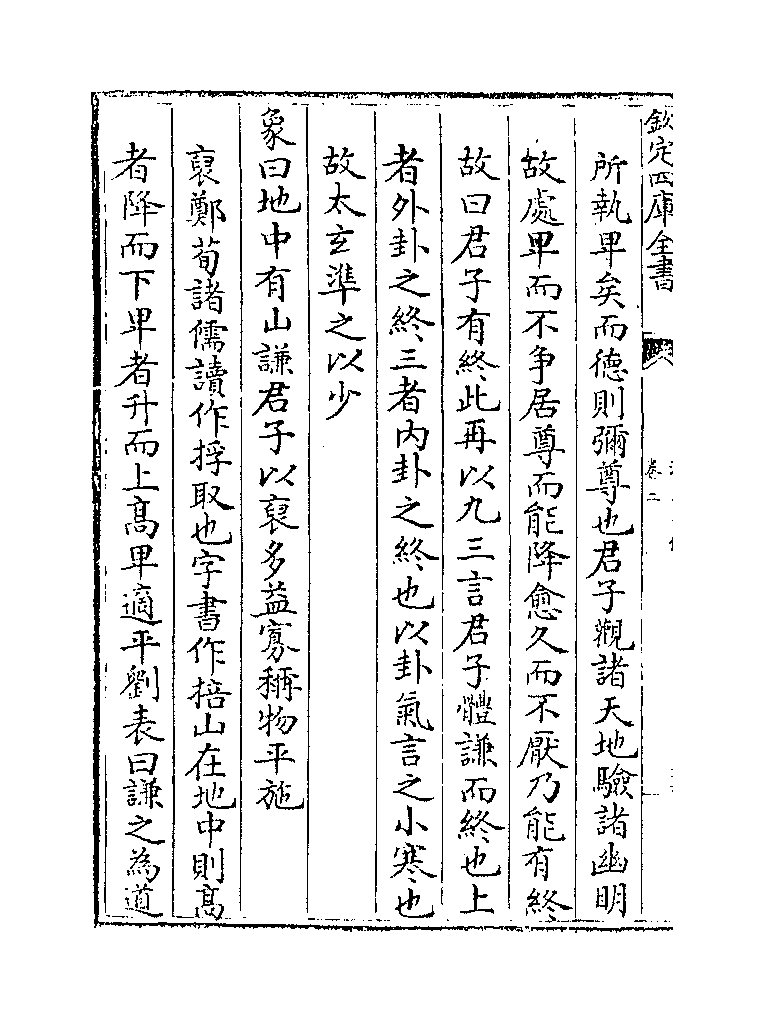 欽定四庫全書
卷二
所執卑矣而德則彌尊也君子觀諸天地驗諸幽明
故處卑而不争居尊而能降愈久而不厭乃能有終
故曰君子有終此再以九三言君子體謙而終也上
者外卦之終三者内卦之終也以卦氣言之小寒也
故太玄準之以少
象曰地中有山謙君子以裒多益寡稱物平施
裒鄭荀諸儒讀作捊取也字書作掊山在地中則髙
者降而下卑者升而上髙卑適平劉表曰謙之為道